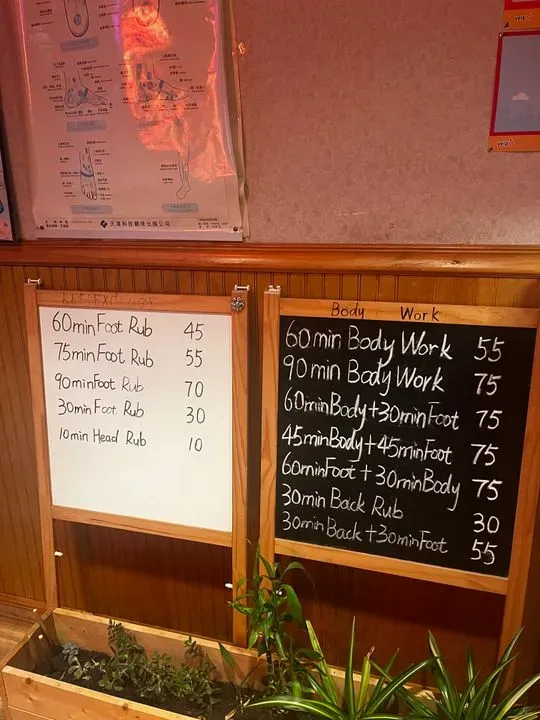 天津科技翻译出版公司
yelp
yelp
REFLEXOLOGY
60min Foot Rub 45
75min Foot Rub 55
90min Foot Rub 70
30min Foot Rub 30
10min Head Rub 10
Body Work
60min Body Work 55
90min Body Work 75
60minBody+30minFoot 75
45minBody+45minFoot 75
60minFoot+30minBody 75
30min Back Rub 30
30minBack+30minFoot 55